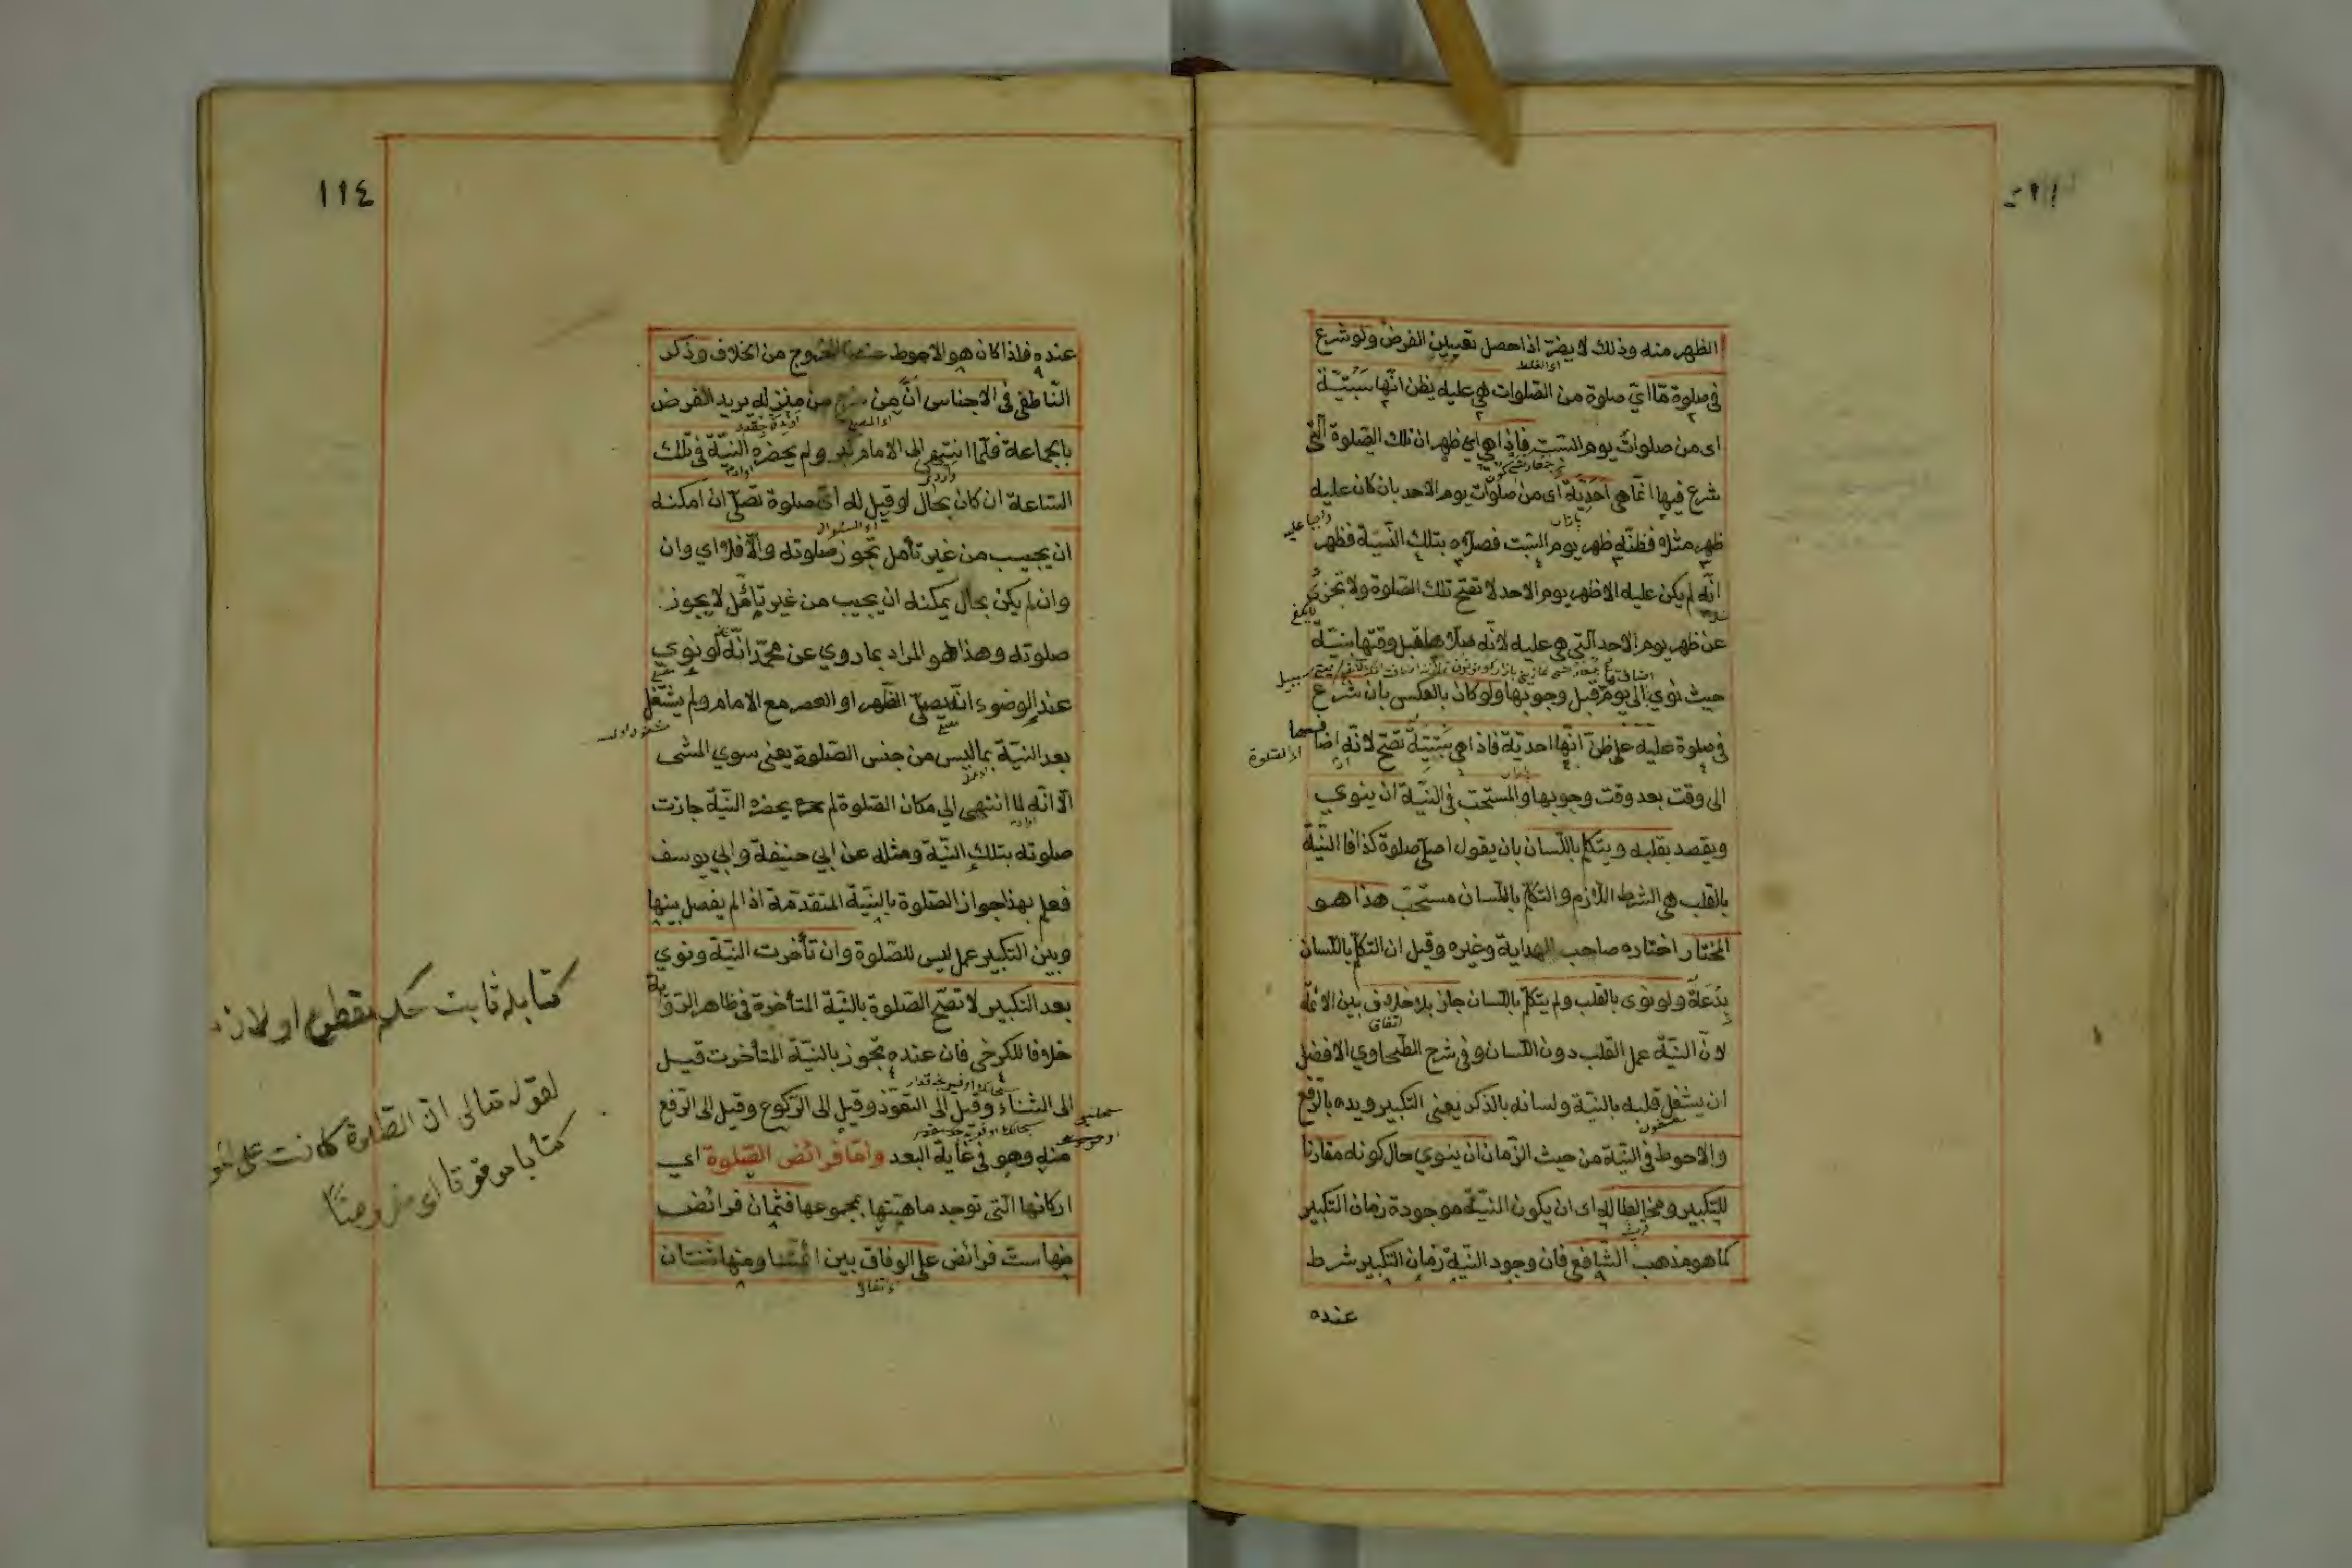 الظهر منه وذلك لا يضرّ اذا حصل تعيين الفرض ولو شرع
اى الغلط
فى صلوة ما اي صلوة من الصلوات هى عليه يظن انّها سبتيّة
اى من صلوات يوم السبت فاذا هى اي ظهر ان تلك الصّلوة الّتى
شرع فيها انّما هى احديّة اى من صلوات يوم الاحد بان كان عليه
واجبا عليه
ظهر مثلا فظنّه ظهر يوم السّبت فصلّاه بتلك النّيّة فظهر
انّه لم يكن عليه الا ظهر يوم الاحد لا تصحّ تلك الصّلوة ولا تجزى
عن ظهر يوم الاحد الّتى هى عليه لانّه صلّاها قبل وقتها بنيّة
حيث نوي الى يوم قبل وجوبها ولو كان بالعكس بان شرع
فى صلوة عليه على ظنّ انّها احديّة فاذا هى سبتيّة تصحّ لانّه اضافها
الى وقت بعد وقت وجوبها والمستحبّ فى النيّة ان ينوي
ويقصد بقلبه ويتكلّم باللّسان بان يقول اصلّى صلوة كذا فا النّيّة
بالقلب هى الشرط اللّازم والتكلّم باللّسان مستحبّ هذا هو
المختار اختاره صاحب الهداية وغيره وقيل ان التكلّم باللّسان
بدعة ولو نوى بالقلب ولم يتكلّم باللّسان جاز بلا خلاف بين الائمّة
اتفاق
لانّ النيّة عمل القلب دون اللّسان وفى شرح الطّحاوي الافضل
ان يشغل قلبه بالنيّة ولسانه بالذكر يعنى التكبير ويده بالرّفع
والاحوط فى النيّة من حيث الزّمان ان ينوي حال كونه مقارنا
للتكبير ومخالطا له اى ان يكون النيّة موجودة زمان التكبير
كما هو مذهب الشّافعى فان وجود النيّة زمان التكبير شرط
عنده
١١٤
عنده فاذا كان هو الاحوط الخروج من الخلاف وذكر
النّاطفى فى الاجناس انّ من خرج من منزله يريد الفرض
بالجماعة فلمّا انتهى الى الامام كبّر ولم يحضره النيّة فى تلك
السّاعة ان كان بحال لو قيل له اىّ صلوة تصلّى ان امكنه
اى السؤال
ان يجيب من غير تأمل تجوز صلوته والّا فلا اي وان
وان لم يكن بحال يمكنه ان يجيب من غير تأمّل لا يجوز
صلوته وهذا هو المراد بما روي عن محمّد انّه لو نوي
عند الوضوء انّه يصلّى الظّهر او العصر مع الامام ولم يشتغل
بعد النيّة بما ليس من جنس الصّلوة يعنى سوي المشى
الّا انّه لمّا انتهى الى مكان الصّلوة لم يحضره النيّة جازت
صلوته بتلك النيّة ومثله عن ابي حنيفة وابي يوسف
فعلم بهذا جواز الصّلوة بالنيّة المتقدّمة اذا لم يفصل بينها
وبين التكبير عمل ليس للصّلوة وان تأخرت النيّة ونوي
بعد التكبير لا تصحّ الصّلوة بالنيّة المتأخرة فى ظاهر الرّواية
خلافا للكرخى فان عنده تجوز بالنيّة المتأخرت قيل
الى الثناء وقيل الى التعوّذ وقيل الى الرّكوع وقيل الى الرّفع
منه وهو فى غاية البعد وامّا فرائض الصّلوة اي
اركانها الّتى توجد ماهيّتها بمجموعها فثمان فرائض
منها ست فرائض على الوفاق بين ائمّتنا ومنها ثنتان
اتفاق
كتابله ثابت حكم مقطوع
لقوله تعالى انّ الصّلوة كانت على
كتابا موقوتا اى